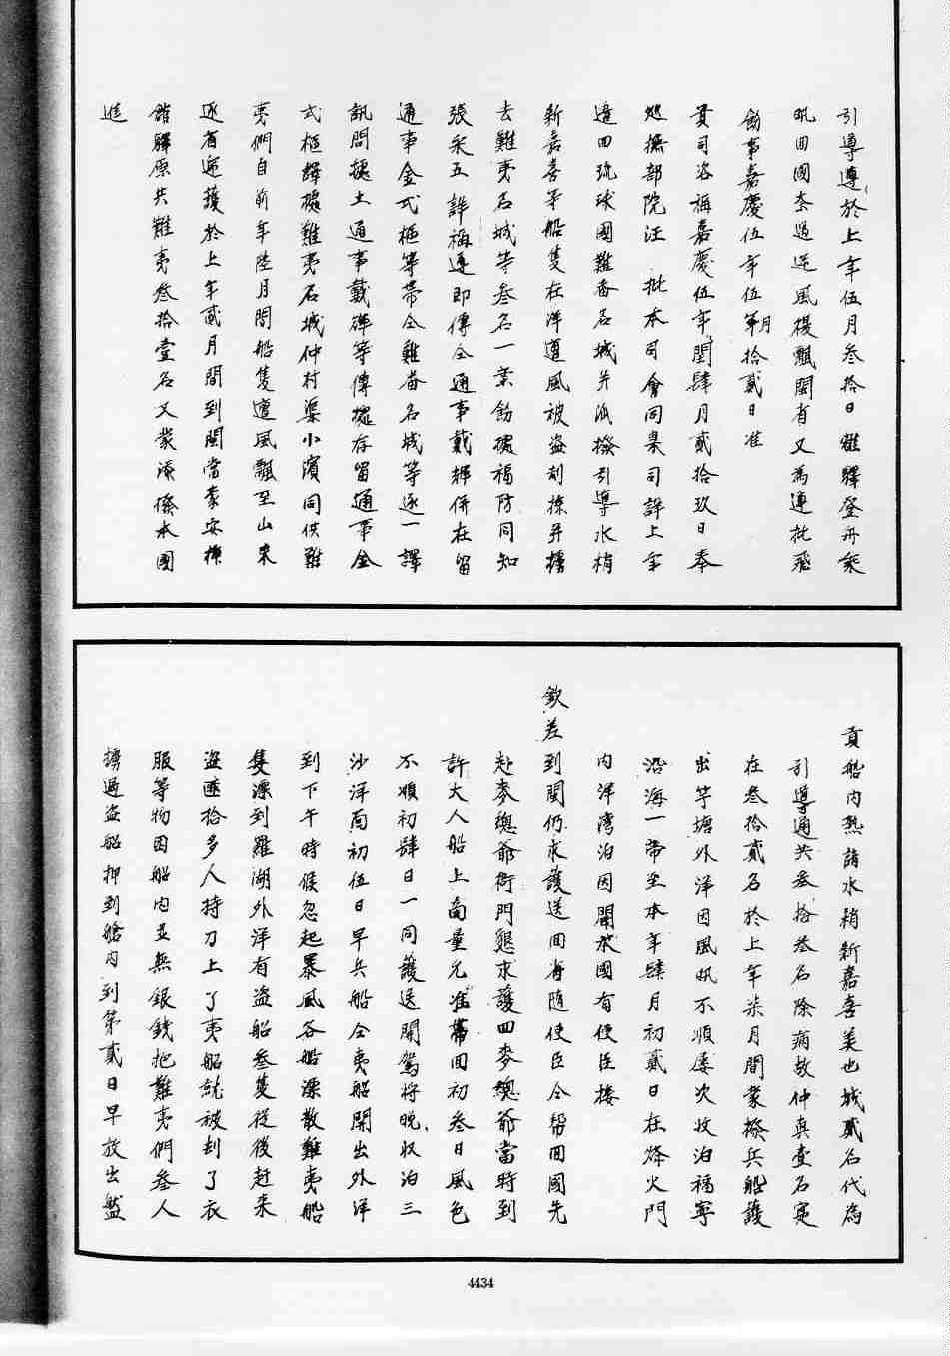 引導導於上年伍月叁拾日離驛登舟乘
帆回國奈遇逆風擾飄閩省又為遵批飛
飭事嘉慶伍年伍年月拾貳日准
貴司咨稱嘉慶伍年閏肆月貳拾玖日奉
巡撫部院汪 批本司會同臬司詳上年
遣回琉球國難番名城并派撥引導水梢
新嘉喜等船隻在洋遭風被盜刦掠并擄
去難夷名城等叁名一案飭據福防同知
張采五詳稱遵即傳仝通事戴輝併在留
通事金式樞等帶仝難番名城等逐一譯
訊問據土通事戴輝等傳據存留通事金
式樞譯據難夷名城仲村渠小濱同供難
夷們自前年陸月間船隻遭風飄至山東
逐省遞護於上年貳月間到閩當蒙安插
館驛原共難夷叁拾壹名又蒙憲係本國
進
貢船內熟諳水梢新嘉喜美也城貳名代為
引導通共叁拾叁名除病故仲真壹名寔
在叁拾貳名於上年柒月間蒙撥兵船護
出竿塘外洋因風帆不順屢次收泊福寧
沿海一帶至本年肆月初貳日在烽火門
內洋灣泊因聞本國有使臣接
欽差到閩仍求護送回省隨使臣仝幫回國先
赴麥總爺衙門懇求護回麥總爺當時到
許大人船上商量允准帶回初叁日風色
不順初肆日一同護送開駕將晚收泊三
沙洋面初伍日早兵船仝夷船開出外洋
到下午時候忽起暴風各船漂散難夷船
隻漂到羅湖外洋有盜船叁隻從後赶來
盜匪拾多人持刀上了夷船就被刦了衣
服等物因船內並無銀錢把難夷們叁人
擄過盜船押到艙內到第貳日早放出艙
4434